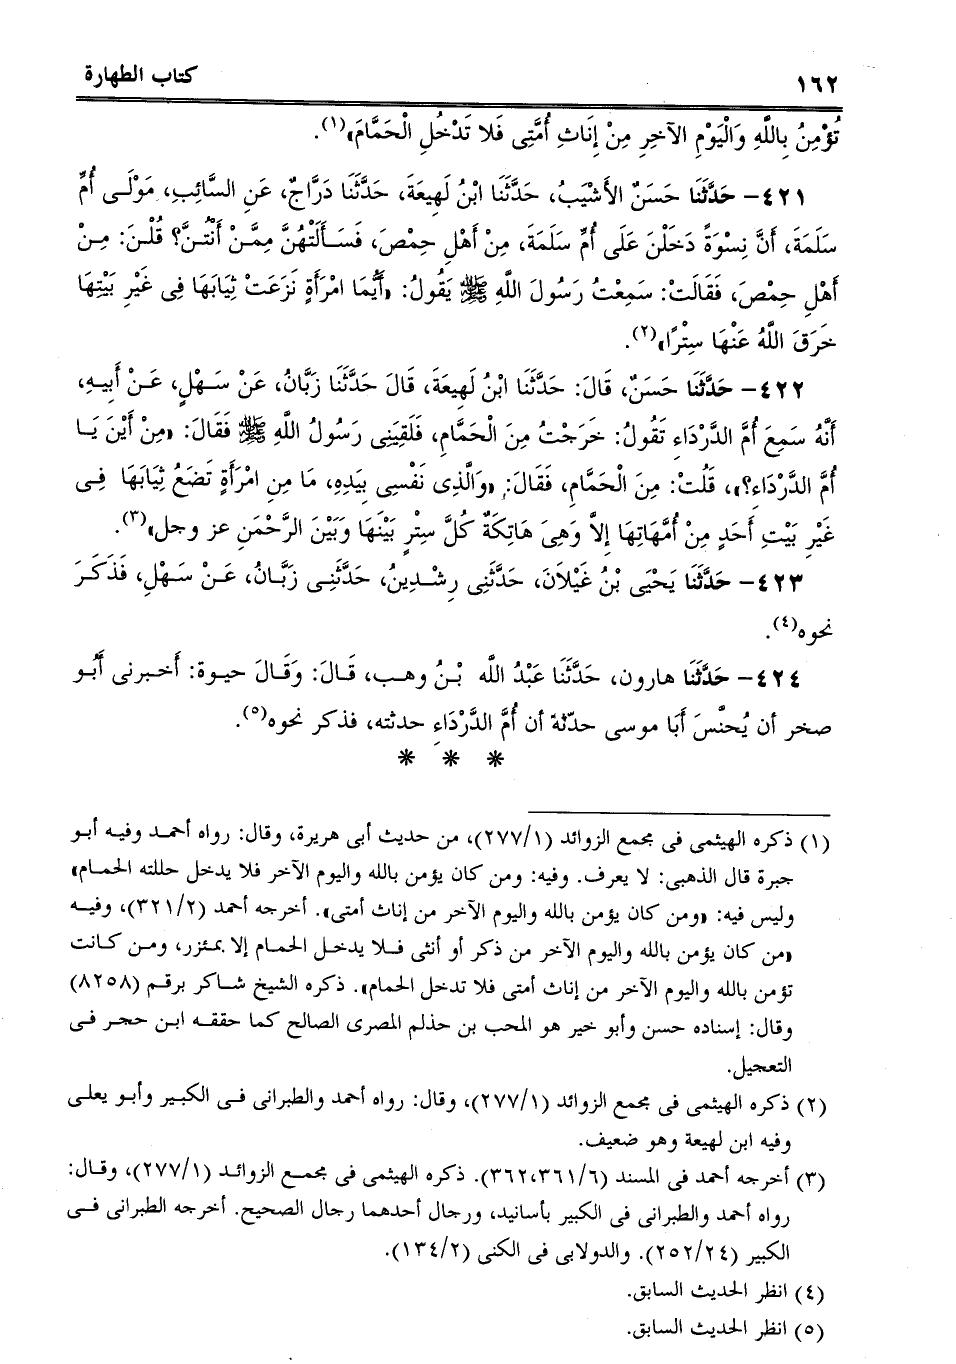 ١٦٢ كتاب الطهارة
تُؤْمِنُ بِاللَّهِ وَالْيَوْمِ الآخِرِ مِنْ إِنَاثِ أُمَّتِى فَلا تَدْخُلِ الْحَمَّامَ»(١).
٤٢١- حَدَّثَنَا حَسَنٌ الأَشْيَبُ، حَدَّثَنَا ابْنُ لَهِيعَةَ، حَدَّثَنَا دَرَّاجٌ، عَنِ السَّائِبِ، مَوْلَى أُمِّ
سَلَمَةَ، أَنَّ نِسْوَةً دَخَلْنَ عَلَى أُمِّ سَلَمَةَ، مِنْ أَهْلِ حِمْصَ، فَسَأَلَتْهُنَّ مِمَّنْ أَنْتُنَّ؟ قُلْنَ: مِنْ
أَهْلِ حِمْصَ، فَقَالَتْ: سَمِعْتُ رَسُولَ اللَّهِ ﷺ يَقُولُ: «أَيُّمَا امْرَأَةٍ نَزَعَتْ ثِيَابَهَا فِى غَيْرِ بَيْتِهَا
خَرَقَ اللَّهُ عَنْهَا سِتْرًا»(٢).
٤٢٢- حَدَّثَنَا حَسَنٌ، قَالَ: حَدَّثَنَا ابْنُ لَهِيعَةَ، قَالَ حَدَّثَنَا زَبَّانُ، عَنْ سَهْلٍ، عَنْ أَبِيهِ،
أَنَّهُ سَمِعَ أُمَّ الدَّرْدَاءِ تَقُولُ: خَرَجْتُ مِنَ الْحَمَّامِ، فَلَقِيَنِى رَسُولُ اللَّهِ ﷺ فَقَالَ: «مِنْ أَيْنَ يَا
أُمَّ الدَّرْدَاءِ؟»، قُلْتُ: مِنَ الْحَمَّامِ، فَقَالَ: «وَالَّذِى نَفْسِى بِيَدِهِ، مَا مِنِ امْرَأَةٍ تَضَعُ ثِيَابَهَا فِى
غَيْرِ بَيْتِ أَحَدٍ مِنْ أُمَّهَاتِهَا إِلاَّ وَهِىَ هَاتِكَةٌ كُلَّ سِتْرٍ بَيْنَهَا وَبَيْنَ الرَّحْمَنِ عز وجل»(٣).
٤٢٣- حَدَّثَنَا يَحْيَى بْنُ غَيْلاَنَ، حَدَّثَنِى رِشْدِينُ، حَدَّثَنِى زَبَّانُ، عَنْ سَهْلٍ، فَذَكَرَ
نحوه(٤).
٤٢٤- حَدَّثَنَا هارون، حَدَّثَنَا عَبْدُ اللَّه بْنُ وهب، قَالَ: وَقَالَ حيوة: أخبرنى أَبُو
صخر أن يُحنَّسَ أَبَا موسى حدّثَهُ أن أُمَّ الدَّرْدَاءِ حدثته، فذكر نحوه(٥).
* * *
(١) ذكره الهيثمى فى مجمع الزوائد (٢٧٧/١)، من حديث أبى هريرة، وقال: رواه أحمد وفيه أبو
جبرة قال الذهبى: لا يعرف. وفيه: ومن كان يؤمن بالله واليوم الآخر فلا يدخل حللته الحمام»
وليس فيه: «ومن كان يؤمن بالله واليوم الآخر من إناث أمتى». أخرجه أحمد (٣٢١/٢)، وفيه
«من كان يؤمن بالله واليوم الآخر من ذكر أو أنثى فلا يدخل الحمام إلا بمئزر، ومن كانت
تؤمن بالله واليوم الآخر من إناث أمتى فلا تدخل الحمام». ذكره الشيخ شاكر برقم (٨٢٥٨)
وقال: إسناده حسن وأبو خير هو المحب بن حذلم المصرى الصالح كما حققه ابن حجر فى
التعجيل.
(٢) ذكره الهيثمى فى مجمع الزوائد (٢٧٧/١)، وقال: رواه أحمد والطبرانى فى الكبير وأبو يعلى
وفيه ابن لهيعة وهو ضعيف.
(٣) أخرجه أحمد فى المسند (٣٦٢،٣٦١/٦). ذكره الهيثمى فى مجمع الزوائد (٢٧٧/١)، وقال:
رواه أحمد والطبرانى فى الكبير بأسانيد، ورجال أحدهما رجال الصحيح. أخرجه الطبرانى فى
الكبير (٢٥٢/٢٤). والدولابى فى الكنى (١٣٤/٢).
(٤) انظر الحديث السابق.
(٥) انظر الحديث السابق.